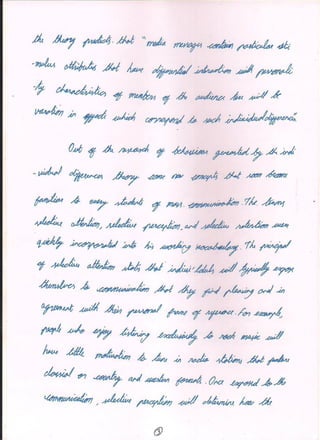 the theory predicts that "media messages contain particular sti
-mulus attributes that have differential interaction with personali
-ty characteristics of members of the audience there will be
variation in effects which correspond to such individual differences
Out of the research of behaviour generated by the indi
-vidual differences theory some new concepts that soon became
familiar to every students of mass communication. The terms
selective attention, selective perception, and selective retention were
quickly incorporated into his working vocabulary. The principal
of selective attention states that individuals will typically expose
themselves to communication that they find pleasing and in
agreement with their personal frame of reference. For example,
people who enjoy listening exclusively to rock music will
have little motivation to tune in radio stations that feature
classical or country and western formats. Once exposed to the
communication, selective perception will determine how the